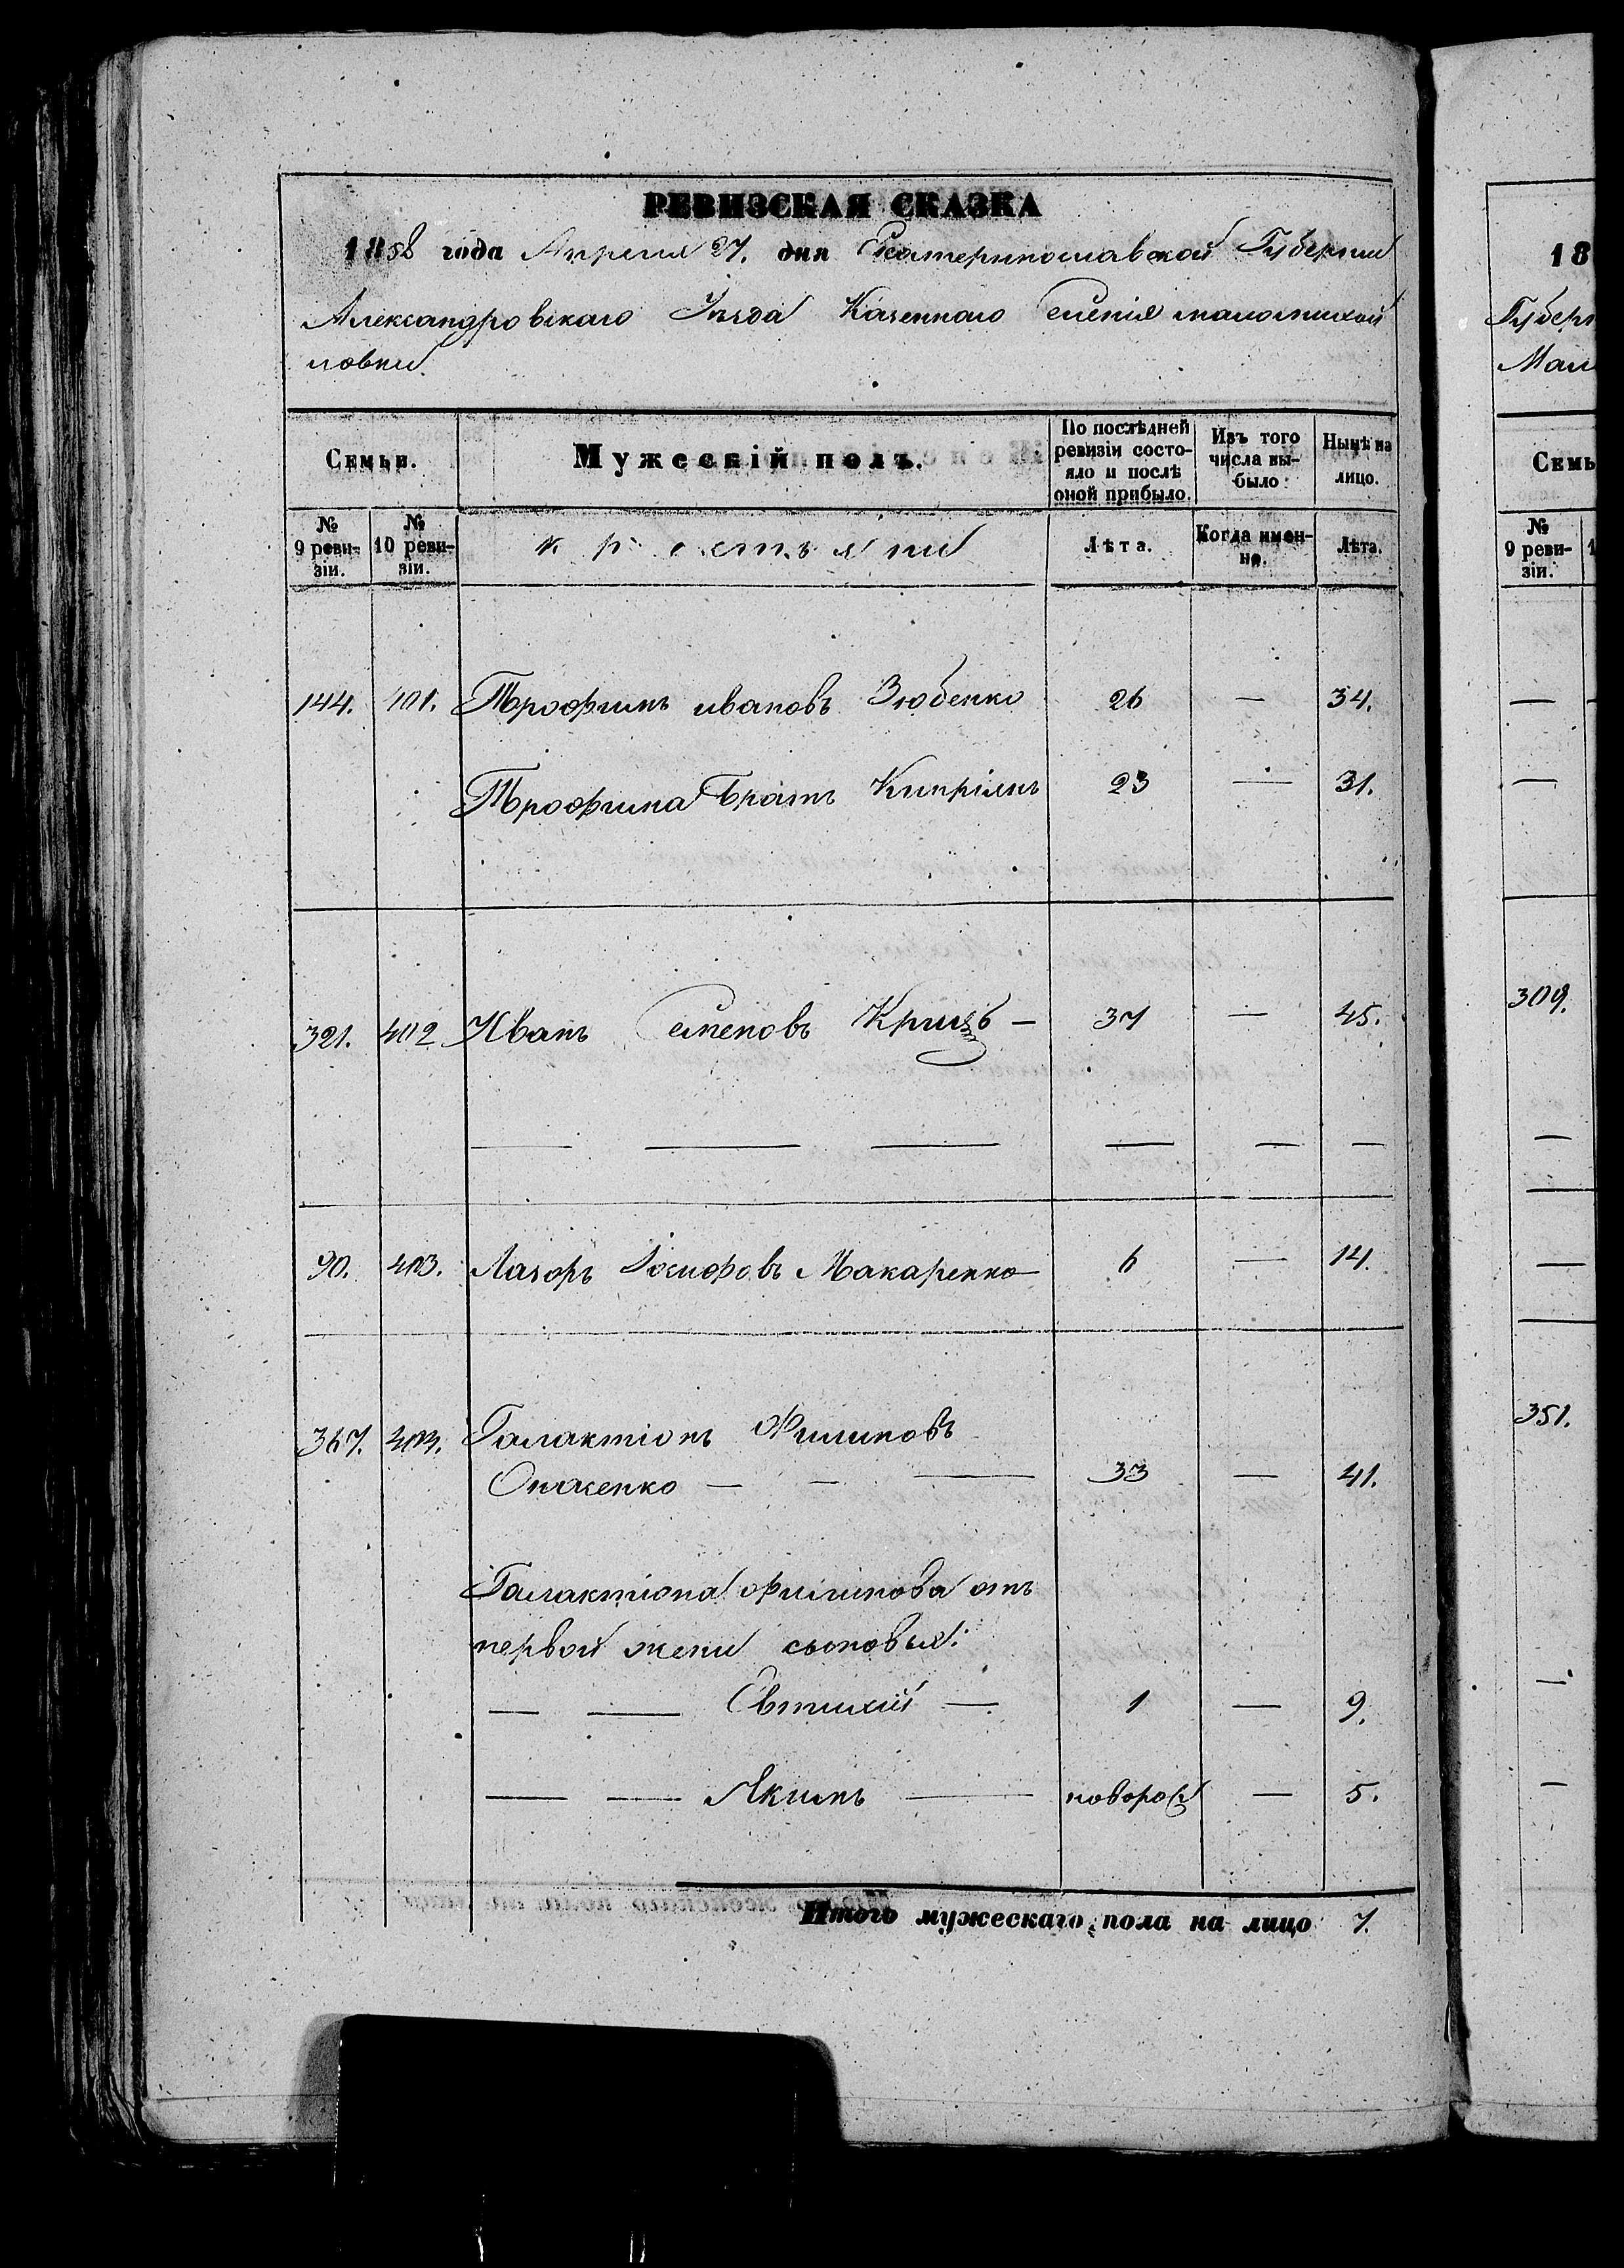 РЕВИЗСКАЯ СКАЗКА
1858 года Апреля 27. дня Екатеринославской Губернии
Александровскаго Уезда Казеннаго Селенія маломихай
ловки
Семьи.
Мужескій полъ.
По послѣдней ревизіи состо-
яло и послѣ
оной прибыло.
Изъ того
числа вы-
было
Нынѣ на
лицо.
№ 9 реви-
зіи.
№ 10 реви-
зіи.
крестьяни
Лѣта.
Когда имен-
но.
Лѣта.
144. 401. Трофимъ ивановъ Зюбенко 26 — 34.
Трофима Братъ Кипріянъ 23 — 31.
321. 402 Иванъ Семеновъ — 37 — 45.
— — — — — —
90. 403. Лазоръ Іосифовъ Макаренко 6 — 14.
367. 404. Галактіонъ Филиповъ
— — 33 — 41.
Галактіона Филипова отъ
первой жени сыновья:
— — Євтихій — 1 — 9.
— — Якимъ — новорож — 5.
Итого мужескаго пола на лицо 7.
18
Губерн
Мали
Семь
№ 9 реви-
зіи.
309.
351.